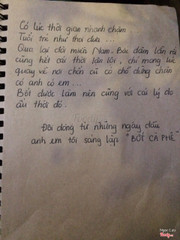 Có lúc thời gian nhanh chậm
Tuổi trẻ như thơi đưa...
Qua lại đôi miền Nam - Bắc dăm lần rồi
cũng hết cái thời lăn lội, chỉ mong về
quay về nơi chốn cũ có phố đứng chân
có anh có em...
Bớt được lắm nên cũng vơi cái lý do
ấu thời đó.
Đôi dòng từ những ngày đầu
anh em tôi sáng lập "BỐT CÀ PHÊ"